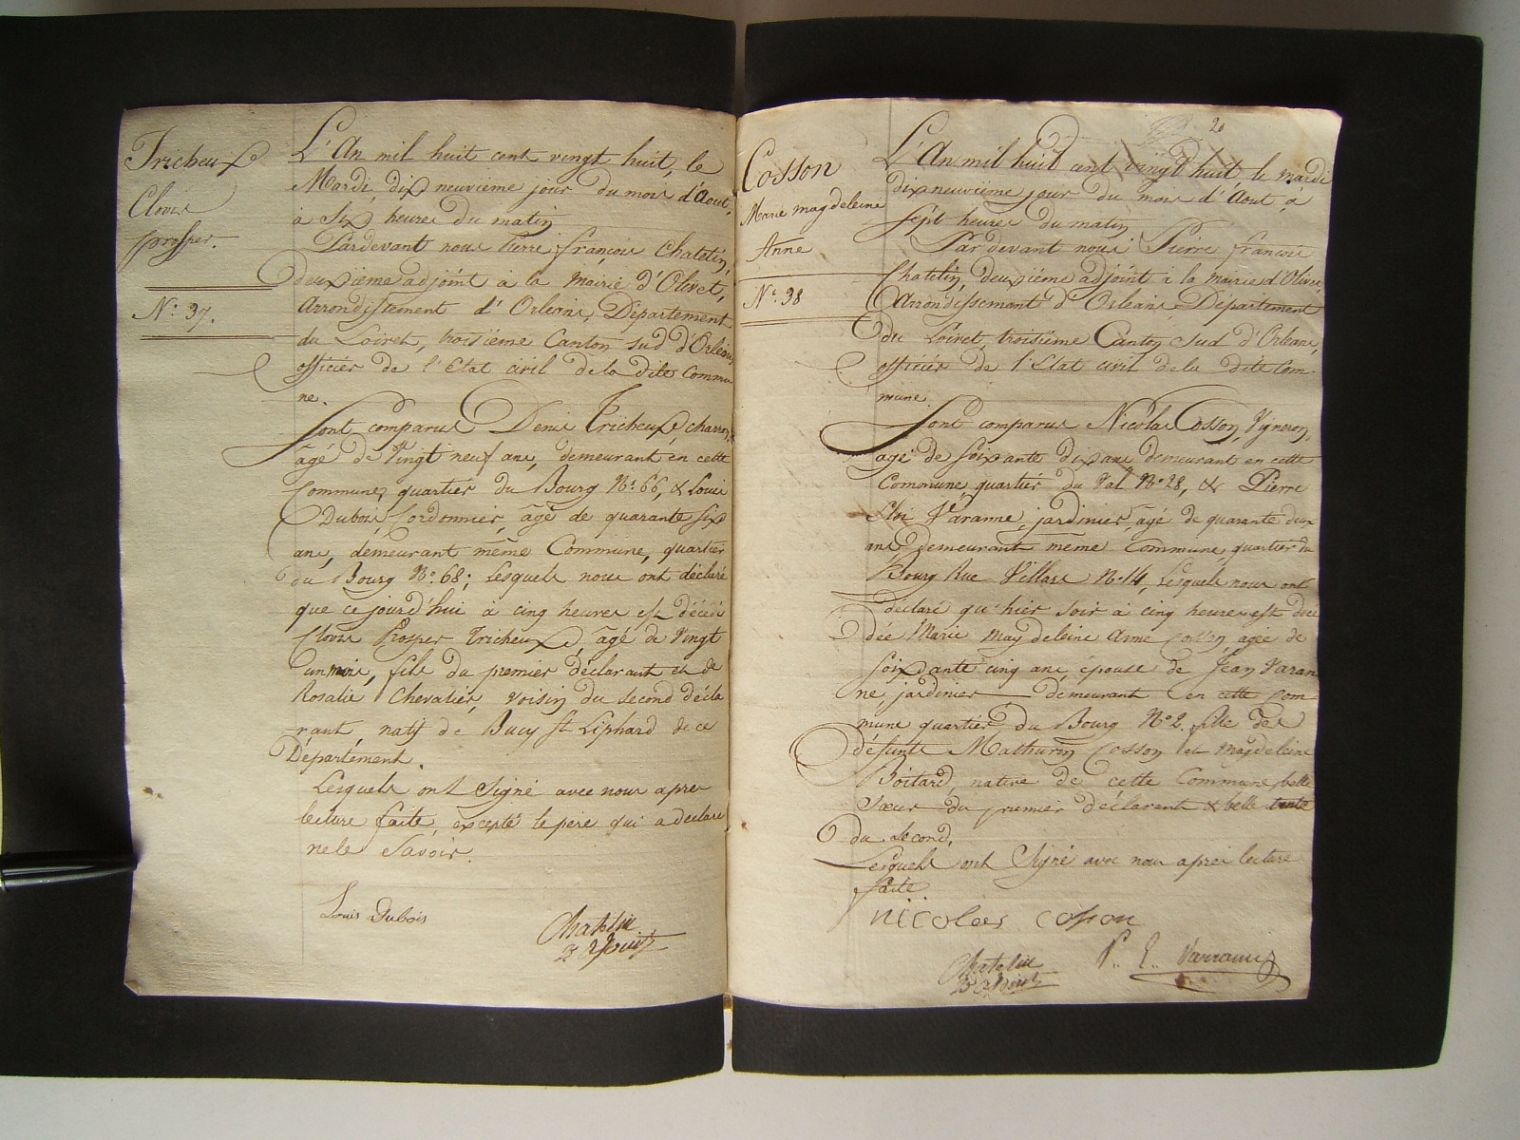 Tricheux
Clovis
prosper.
N.° 37.
L'An mil huit cent vingt huit, le
Mardi, dix neuvième jour du mois d'Aout,
à Six heures du matin
Pardevant nous Pierre françois Chatelin,
deuxième adjoint à la Mairie d'Olivet,
arrondissement d'Orleans, Département
du Loiret, troisième Canton sud d'Orleans,
officier de l'Etat civil de la dite Commu
ne.
Sont comparus Denis Tricheux, charron,
agé de Vingt neuf ans, demeurant en cette
Commune, quartier du Bourg N.° 66, & Louis
Dubois, Cordonnier, âgé de quarante six
ans, demeurant même Commune, quartier
du Bourg N.° 68; Lesquels nous ont déclaré
que ce jourd'hui à cinq heures est décédé
Clovis Prosper Tricheux, âgé de Vingt
un mois, fils du premier déclarant et de
Rosalie Chevalier, voisin du second décla
rant, natif de Bucy St Liphard de ce
Département.
Lesquels ont Signé avec nous apres
lecture faite, excepté le pere qui a declaré
ne le Savoir.
Louis Dubois
Chatelin
20
Cosson
Marie magdeleine
Anne
N.° 38
L'An mil huit cent vingt huit le mardi
dix neuvième jour du mois d'Aout, a
Sept heures du matin
Par devant nous Pierre francois
Chatelin, deuxième adjoint à la mairie d'Olivet,
Arrondissement d'Orleans, Département
du Loiret, troisième Canton Sud d'Orleans,
officier de l'Etat civil de la dite Com
mune.
Sont comparus Nicolas Cosson, Vigneron,
agé de soixante dix ans demeurant en cette
Commune, quartier du Val N.° 28, & Pierre
Eloi Varanne, jardinier, âgé de quarante deux
ans demeurant même Commune, quartier du
Bourg Rue Villars N.° 14, Lesquels nous ont
déclaré qu'hier soir à cinq heures est déce
dée Marie Magdeleine Anne Cosson, agée de
soixante cinq ans, épouse de Jean Varan
ne, jardinier demeurant en cette com
mune quartier du Bourg N.° 2. fille de
défunts Mathurin Cosson et magdeleine
Boitard, native de cette Commune, belle
Sœur du premier déclarant & belle tante
du Second,
Lesquels ont Signé avec nous apres lecture
faite
Nicolas coson
Chatelin
P.. E.. Varranne